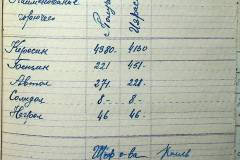 Наименование
горючего
Получ
Израс
Керосин 4380.- 4150
Бензин 221 451.-
Автол 271.- 228.-
Солидол 8.- 8.-
Нигрол 46 46.-